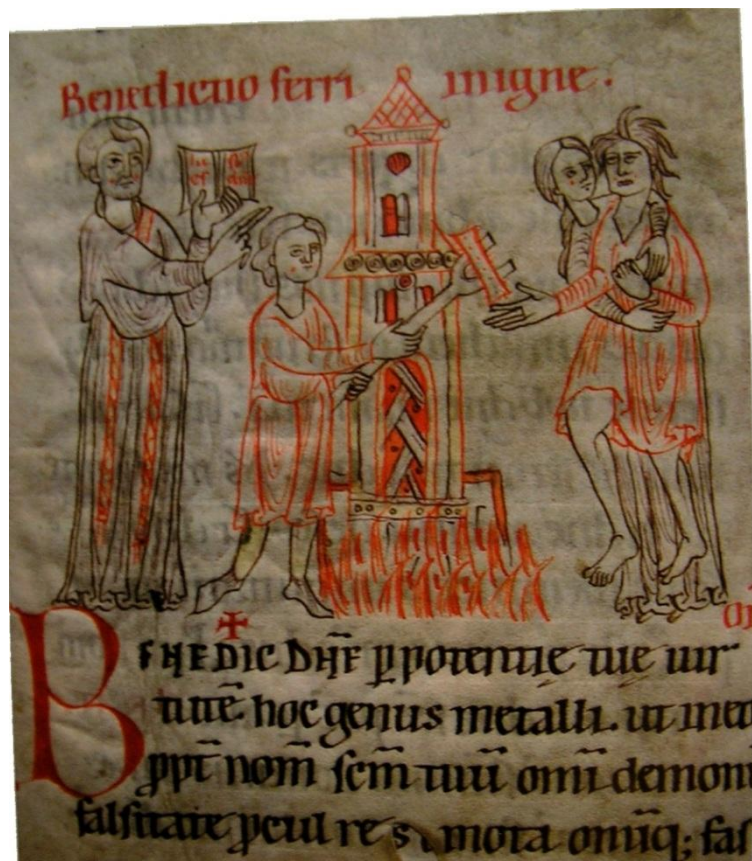 Benedictio ferri in igne.
BENEDIC DN̄E ꝑ potentie tue uir
tutē hoc genus metalli. ut in
ꝓpt̄ nom̄ sc̄m tuū om̄i demoni
falsitate ꝓcul re mota om̄iq; fal